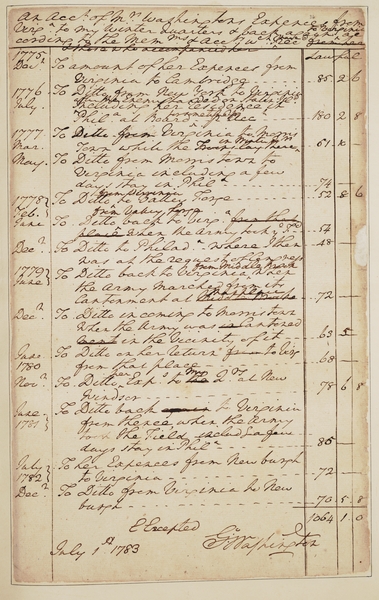 An Acct. of Mrs. Washingtons Expences from
Virga. to my Winter Quarters & back
1775 Lawful
Decr. To amount of her Expences from
Virginia to Cambridge 85 2 6
1776 To Ditto from New York to Virginia
July
Phila. 180 2 8
1777 To Ditto from Virginia to Morris
Mar. Town 61 "
May To Ditto from Morristown to
Virginia including a few
days stay in Phila. 74
1778 from Virginia
Feb. To Ditto to Valley Forge 52 8 6
from Valley Forge
June To Ditto back to Virga.
when the Army took ye. Fd. 54
Decr. To Ditto to Philada. where I then 48
was at the request of Congress
1779 from Middle brook
June To Ditto back to Virginia when
the Army Marched from its
Cantonment at 72
Decr. To Ditto in coming to Morristown
when the Army was Cantoned
in the Vicinity of it 63 5
June To Ditto on her return to Virga.
1780 from that place 68
Novr. To Ditto Exps. to Qrs. at New
Windsor 78 6 8
June To Ditto back to Virginia
1781 from thence when the Army
took the Field, includg. a few
days stay in Phila. 85
July To her Expences from Newburgh
1782 to Virginia 72
Decr. To Ditto from Virginia to New
burgh 70 5 8
1064 1 0
E Excepted
July 1st. 1783 Go. Washington